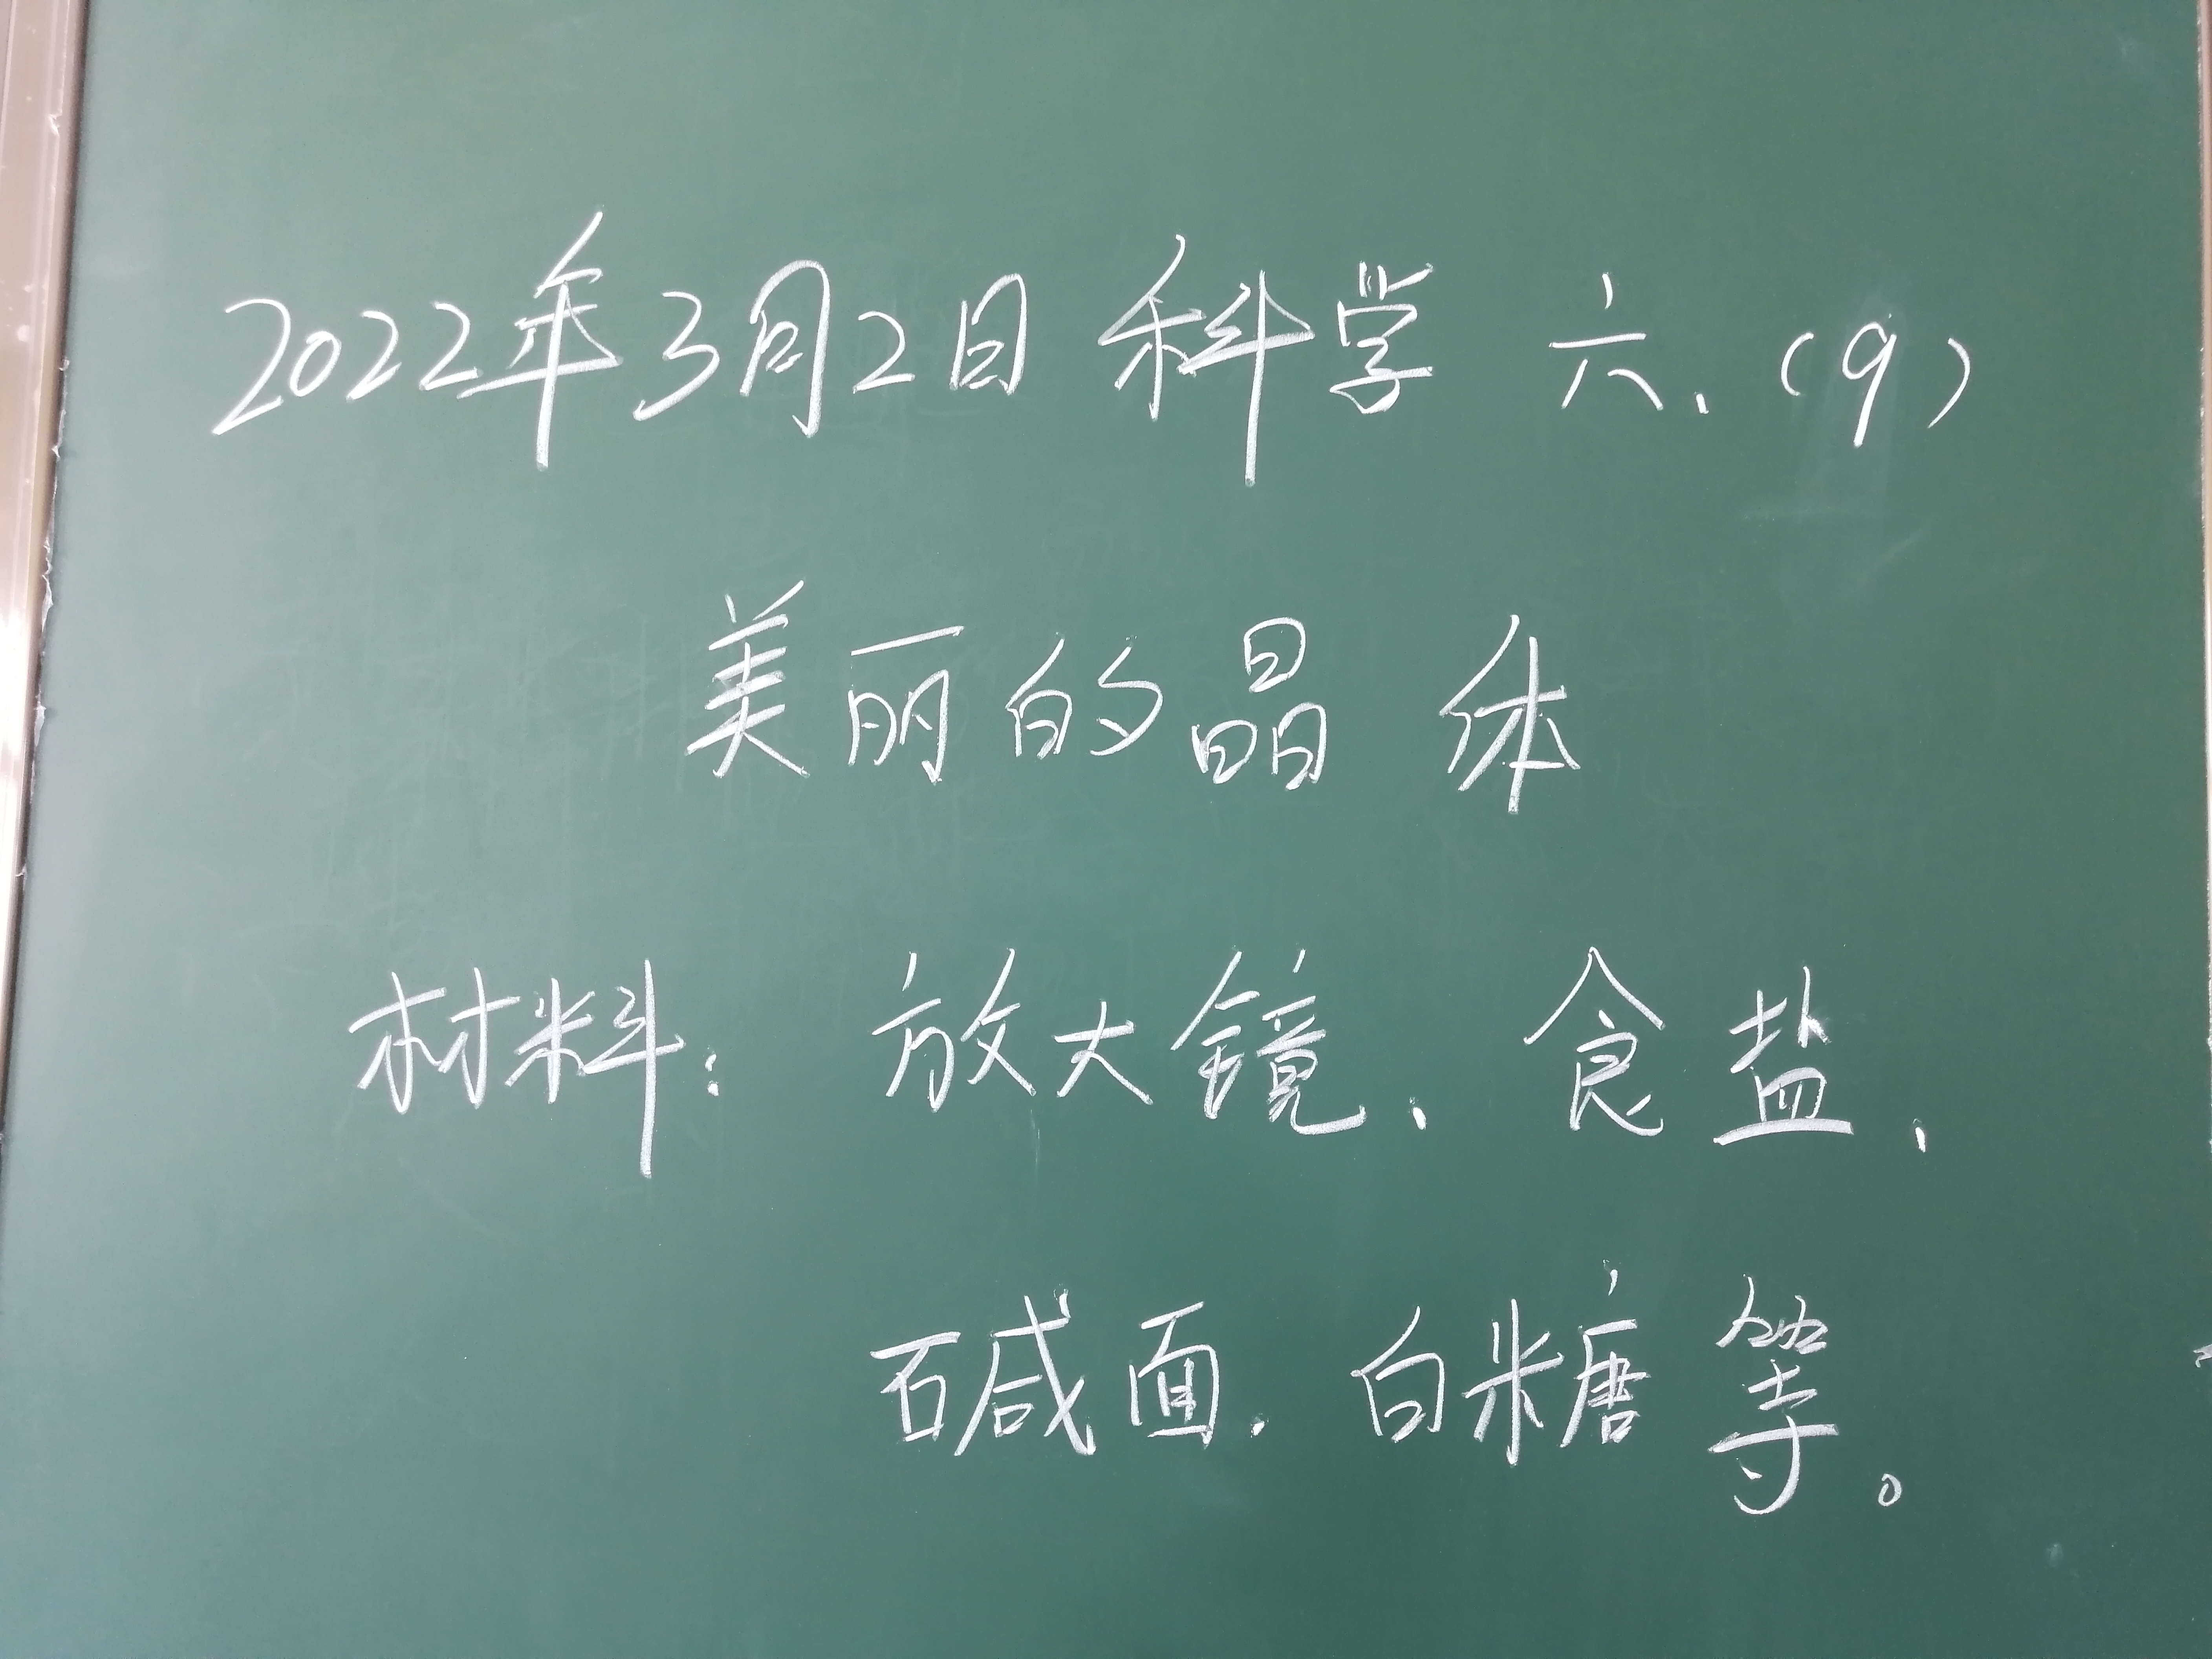 2022年3月2日 科学 六、(9)
美丽的晶体
材料：放大镜、食盐、
碱面、白糖等。